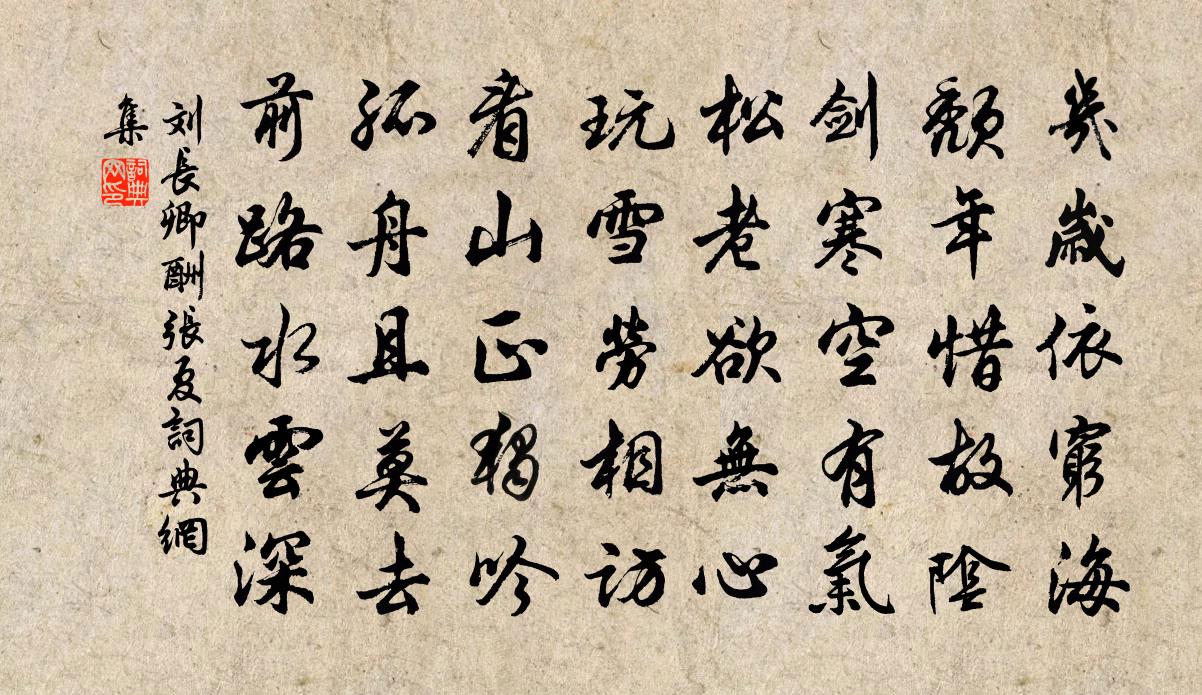 幾歲依窮海
頽年惜故陰
劍寒空有氣
松老欲無心
玩雪勞相訪
看山正獨吟
孤舟且莫去
前路水雲深
刘長卿酬張夏詞典網
集
詞典網印